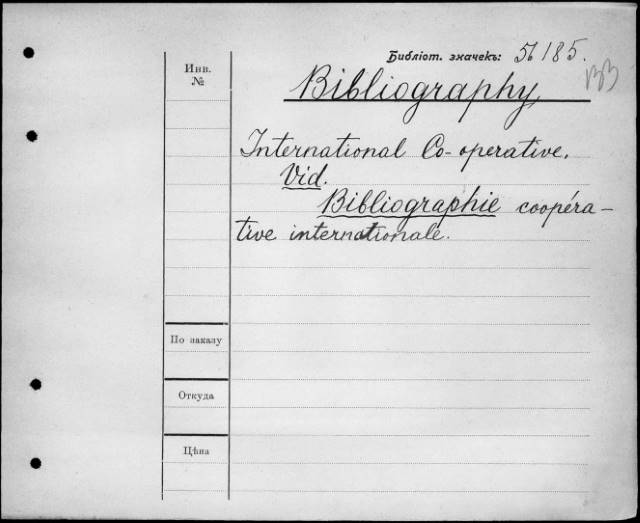 Библіот. значекъ: 56 185.
Инв.
№
Bibliography
International Co-operative.
Vid.
Bibliographie coopéra-
tive internationale.
По заказу
Откуда
Цѣна